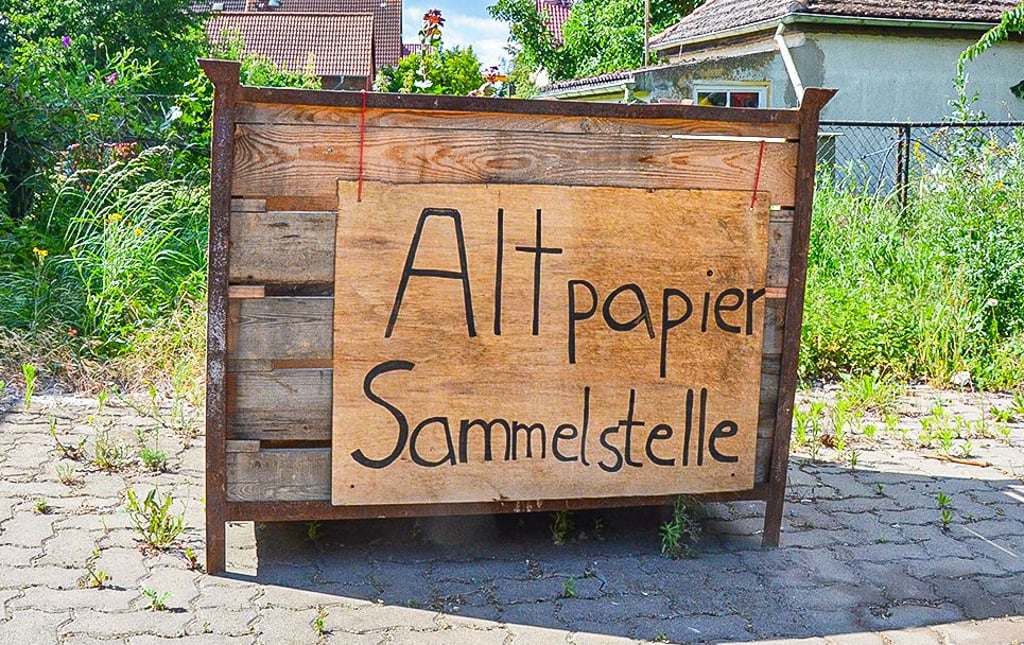 Altpapier
Sammelstelle